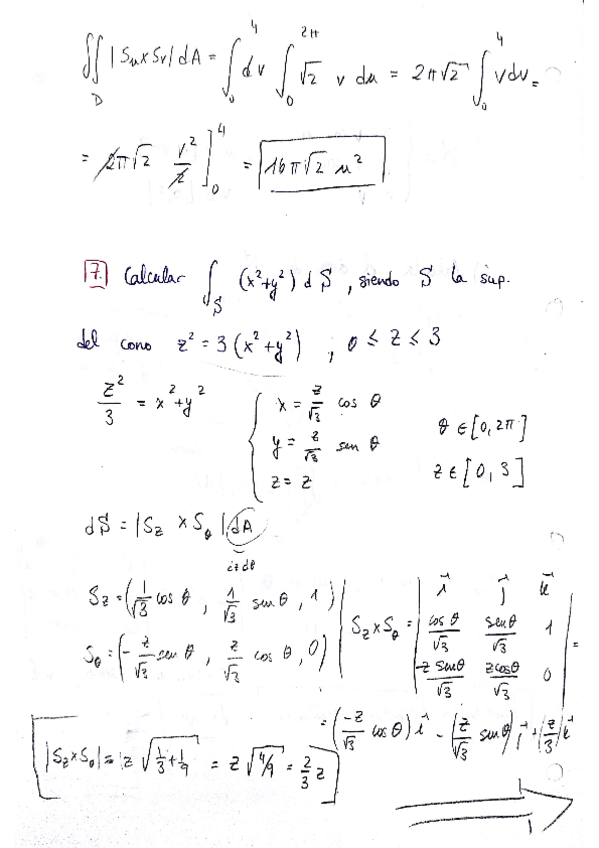 ∬_D |Su x Sv| dA = ∫₀⁴ dv ∫₀^{2π} √2 v du = 2π√2 ∫₀⁴ v dv =
= 2π√2 v²/2 ]₀⁴ = 16π√2 u²
7. Calcular ∫_S (x²+y²) dS, siendo S la sup.
del cono z² = 3(x²+y²), 0 ≤ z ≤ 3
z²/3 = x²+y² { x = z/√3 cos θ
y = z/√3 sen θ θ ∈ [0, 2π]
z = z z ∈ [0, 3]
dS = |Sz x Sθ| dA
dz dθ
Sz = (1/√3 cos θ, 1/√3 sen θ, 1)
Sθ = (-z/√3 sen θ, z/√3 cos θ, 0)
Sz x Sθ = | i j k |
| cos θ/√3 sen θ/√3 1 | =
| -z sen θ/√3 z cos θ/√3 0 |
= (-z/√3 cos θ) i - (z/√3 sen θ) j + (z/3) k
|Sz x Sθ| = z √(1/3 + 1/9) = z √(4/9) = 2/3 z